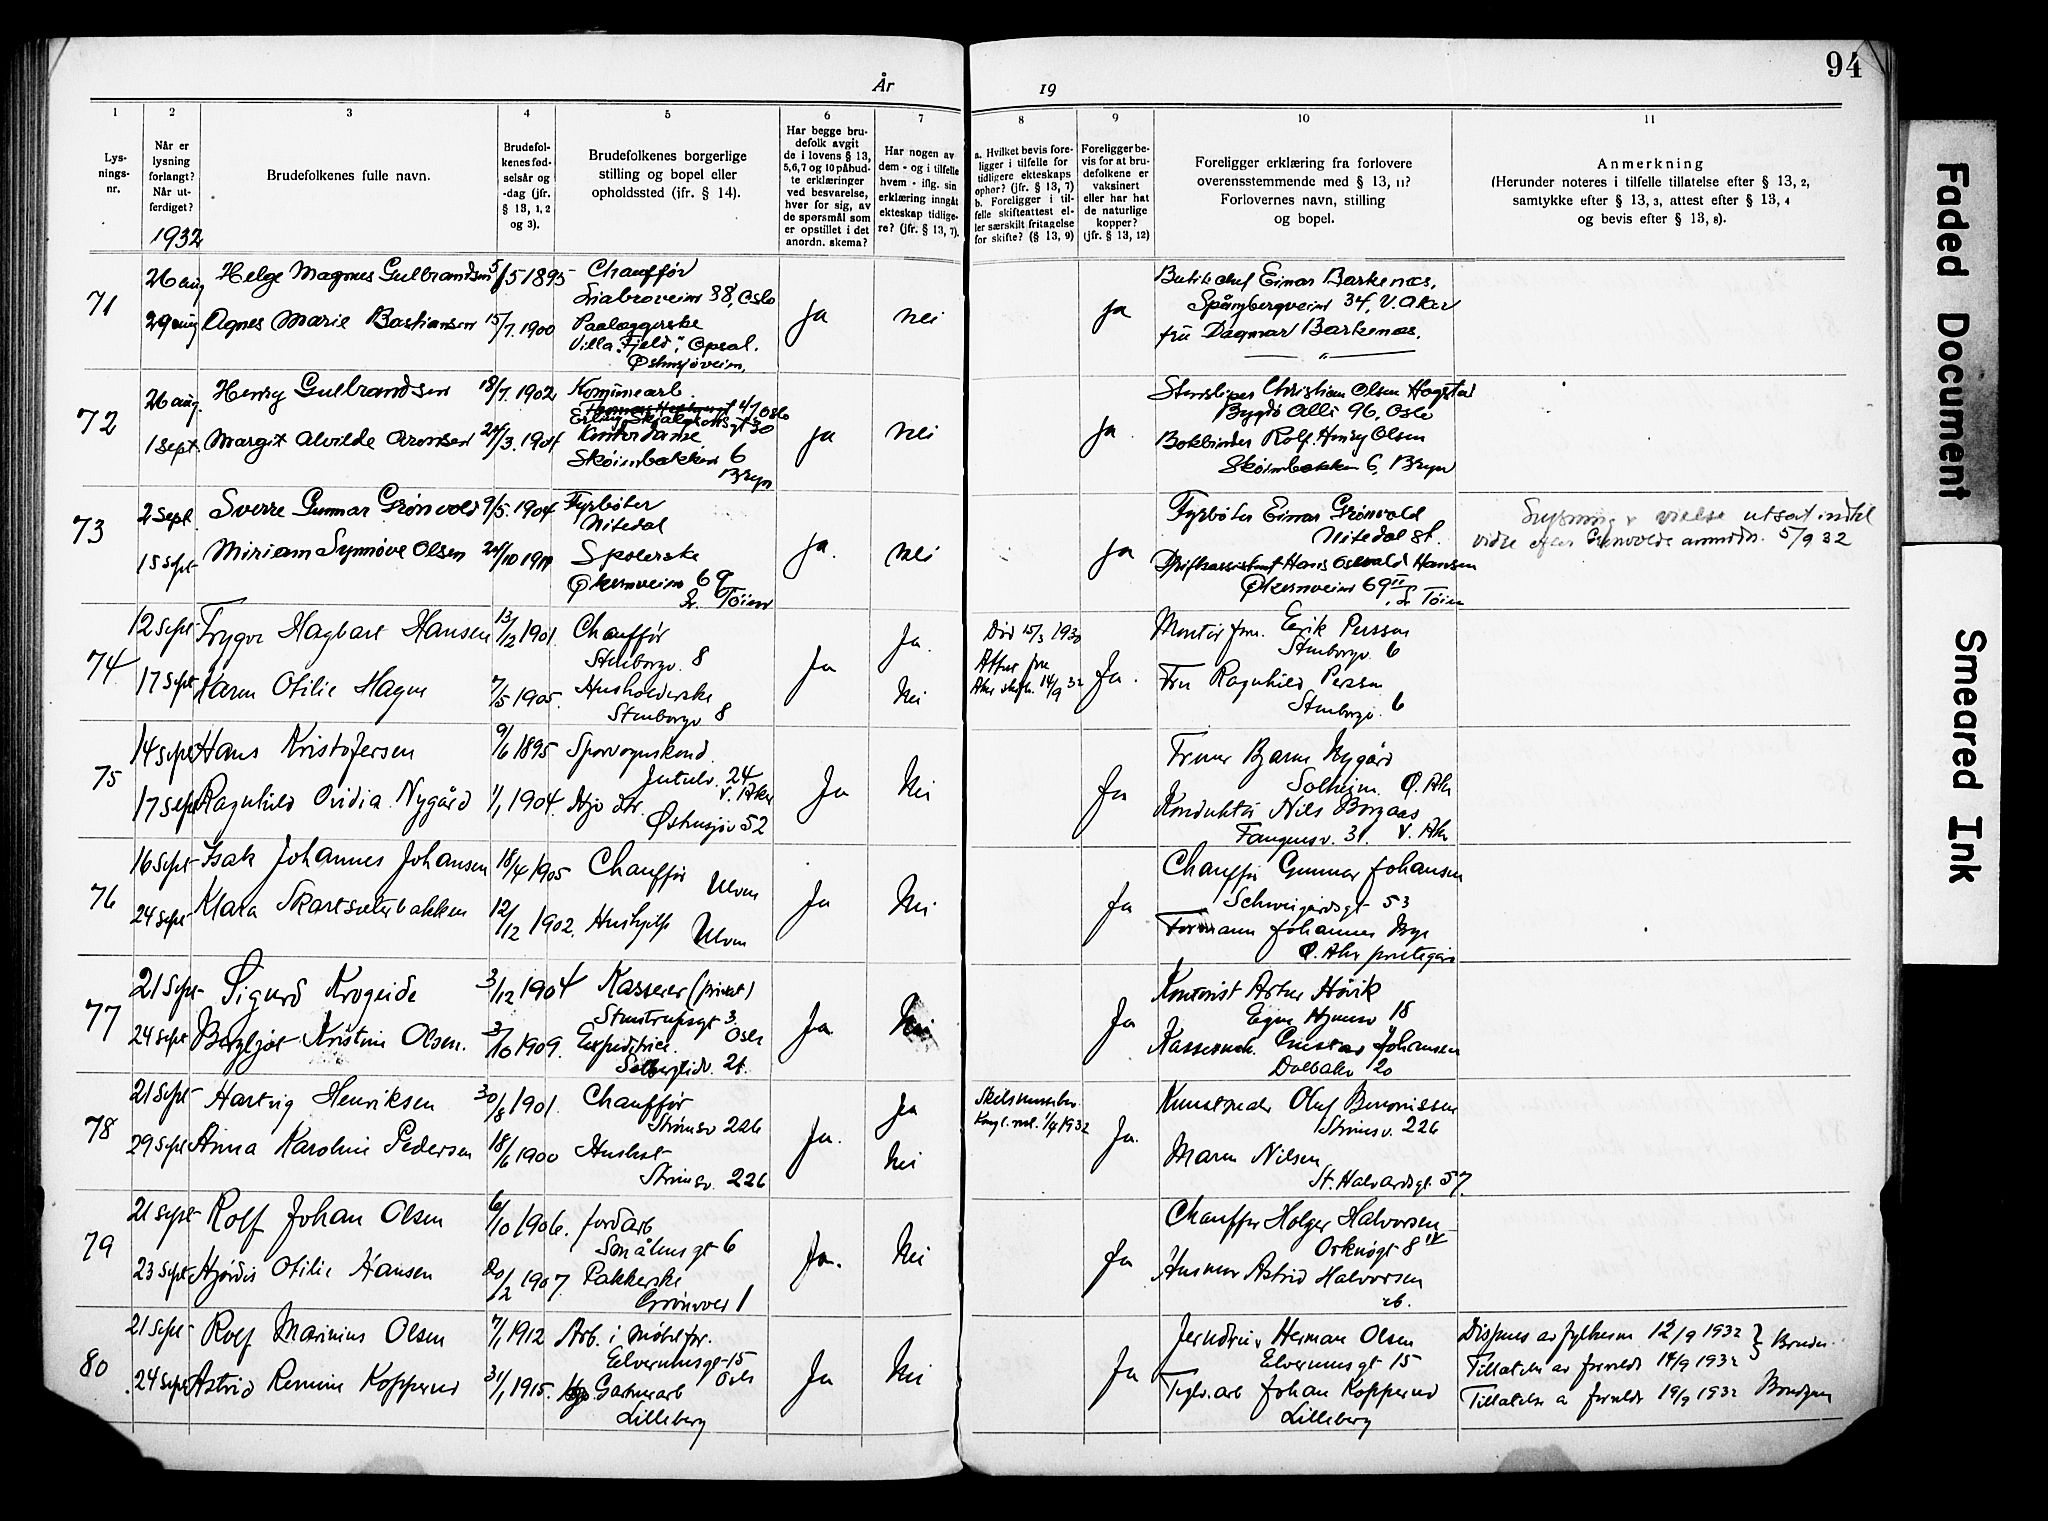 94
År 19
1 2 3 4 5 6 7 8 9 10 11
Lysnings-nr.
Når er lysning forlangt? Når utferdiget?
Brudefolkenes fulle navn.
Brudefolkenes fødselsår og -dag (jfr. § 13, 1, 2 og 3).
Brudefolkenes borgerlige stilling og bopel eller opholdssted (jfr. § 14).
Har begge brudefolk avgit de i lovens § 13, 5,6,7 og 10 påbudte erklæringer ved besvarelse, hver for sig, av de spørsmål som er opstillet i det anordn. skema?
Har nogen av dem - og i tilfelle hvem - iflg. sin erklæring inngåt ekteskap tidligere? (jfr. § 13, 7).
a. Hvilket bevis foreligger i tilfelle for tidligere ekteskaps ophør? (jfr. § 13, 7)
b. Foreligger i tilfelle skifteattest eller særskilt fritagelse for skifte? (§ 13, 9)
Foreligger bevis for at brudefolkene er vaksinert eller har hat de naturlige kopper? (jfr. § 13, 12)
Foreligger erklæring fra forlovere overensstemmende med § 13, 11?
Forlovernes navn, stilling og bopel.
Anmerkning
(Herunder noteres i tilfelle tillatelse efter § 13, 2, samtykke efter § 13, 3, attest efter § 13, 4 og bevis efter § 13, 8).
1932
71
26 aug Helge Magnus Gulbrandsen 5/5 1895 Chauffør
Liabroveien 88, Oslo
29 aug Agnes Marie Bastiansen 15/7. 1900 Paalæggerske
Villa "Fjeld", Opsal.
Østensjøveien,
Ja Nei Ja
Einar Barkenæs,
Spångbergveien 34, V. Aker
fru Dagmar Barkenæs.
72
26 aug. Henry Gulbrandsen 18/7. 1902 Kommunearb.
Erling Skjalgssonsgt 30
1 sept. Margit Alvilde Aronsen 24/3. 1904 Kontordame
Skøienbakken 6
Bryn
Ja Nei Ja.
Stensliper Christian Olsen Hagstad
Bygdø Allé 96, Oslo
Bokbinder Rolf Henry Olsen
Skøienbakken 6, Bryn
73
2 sept. Sverre Gunnar Grønvold 9/5. 1904 Fyrbøter
Nitedal
15 sept. Miriam Synnøve Olsen 24/10 Spolerske
Økernveien 69
Tøien
Ja. Nei Ja
Fyrbøter Einar Grønvold
Nitedal st.
Driftsassistent Hans Oswald Hansen
Økernveien 69 II
Tøien
Lysning & vielse utsat indtil
videre efter Grønvolds anmodn. 5/9 32
74
12 sept Trygve Hagbart Hansen 13/12 1901. Chauffør
Stenborgv. 8
17 sept Karen Otilie Hagen 7/5 1905. Husholderske
Stenborgv 8
Ja Ja. Nei
Død 15/3 1930
Attest fra
Aker skifter. 14/9 32
Ja.
Montør Erik Persson
Stenborgv. 6
Fru Ragnhild Persson
Stenborgv. 6
75
14 sept Hans Kristofersen 9/6 1895 Sporvognskond.
Jutulv. 24
V. Aker
17 sept Ragnhild Ovidia Nygård 1/1 1904. Hjv dtr.
Østensjøv 52
Ja Nei Ja
Bjarne Nygård
Solheim. Ø. Aker
Konduktør Nils Borgaas
Fangensv. 31. V. Aker
76
16 sept Isak Johannes Johansen 18/4 1905 Chauffør
Ulven
24 sept Klara Skartsæterbakken 12/12 1902. Hushjelp
Ulven
Ja Nei Ja
Chauffør Gunnar Johansen
Schweigårdsgt 53
Formann Johannes Bye
Ø. Aker prestegård
77
21 sept Sigurd Krogeide 3/12 1904 Kasserer (privat)
Stenstrupsgt 3.
Oslo
24 sept Bergljot Kristine Olsen. 3/10 1909. Expeditrice.
Solbergliv. 21.
Ja. Nei Ja
Kontorist Artur Høvik
Egne Hjemsv 18
Gustav Johansen
Dalbakv 20
78
21 sept Hartvig Henriksen 30/8 1901. Chauffør
Strømsv 226
29 sept Anna Karoline Pedersen 18/6 1900 Hushol.
Strømsv. 226
Ja. Ja Nei
Kongl. res. 1/4 1932
Ja.
Oluf Benonissen
Strømsv. 226
Maren Nilsen
St. Halvardsgt. 57.
79
21 sept Rolf Johan Olsen 6/10 1906. Jordarb
Smålensgt 6
23 sept Hjørdis Otilie Hansen 20/2 1907. Pakkerske
Grønvoll 1
Ja. Nei Ja
Chauffør Holger Halvorsen
Orknøgt 8 IV
Husmor Astrid Halvorsen
ib.
80
21 sept Rolf Marinius Olsen 7/1 1912 Arb. i Møbelfor.
Elverumsgt 15
Oslo
24 sept Astrid Kopperud 31/1 1915. Gartnerarb
Lilleberg
Ja Nei Ja
Jerndreier Herman Olsen
Elverumsgt 15
Teglv.arb Johan Kopperud
Lilleberg
Dispens av fylkesm 12/9 1932
Tillatelse av foreldre 14/9 1932 } Bruden
Tillatelse a foreldre 19/9 1932 Brudgom
Faded Document
Smeared Ink